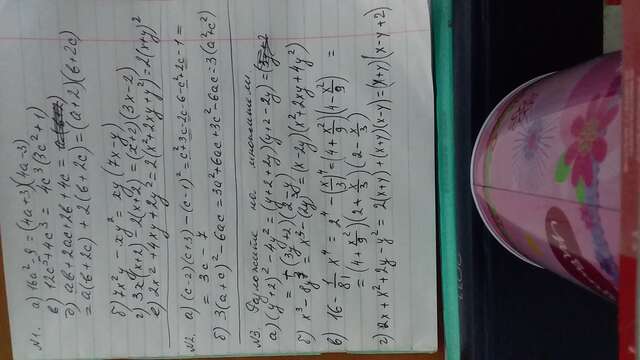 N1. a) 16a² - 9 = (4a+3)(4a-3)
в) 12c⁵ + 4c³ = 4c³(3c²+1)
д) ab + 2ac + 2b + 4c =
= a(b+2c) + 2(b+2c) = (a+2)(b+2c)
б) 7x²y - xy² = xy(7x-y)
г) 3x(x+2) - 2(x+2) = (x+2)(3x-2)
е) 2x² + 4xy + 2y² = 2(x²+2xy+y²) = 2(x+y)²
N2. a) (c-2)(c+3) - (c-1)² = c²+3c-2c-6-c²+2c-1 =
= 3c - 7
б) 3(a+c)² - 6ac = 3a²+6ac+3c²-6ac = 3(a²+c²)
N3. Разложите на множители.
a) (y+2)² - 4y² = (y+2+2y)(y+2-2y) =
= (3y+2)(2-y)
б) x³ - 8y³ = x³ - (2y)³ = (x-2y)(x²+2xy+4y²)
в) 16 - 1/81 x⁴ = 2⁴ - (x/3)⁴ = (4+x²/9)(4-x²/9) =
= (4+x²/9)(2+x/3)(2-x/3)
г) 2x + x² + 2y - y² = 2(x+y) + (x+y)(x-y) = (x+y)(x-y+2)